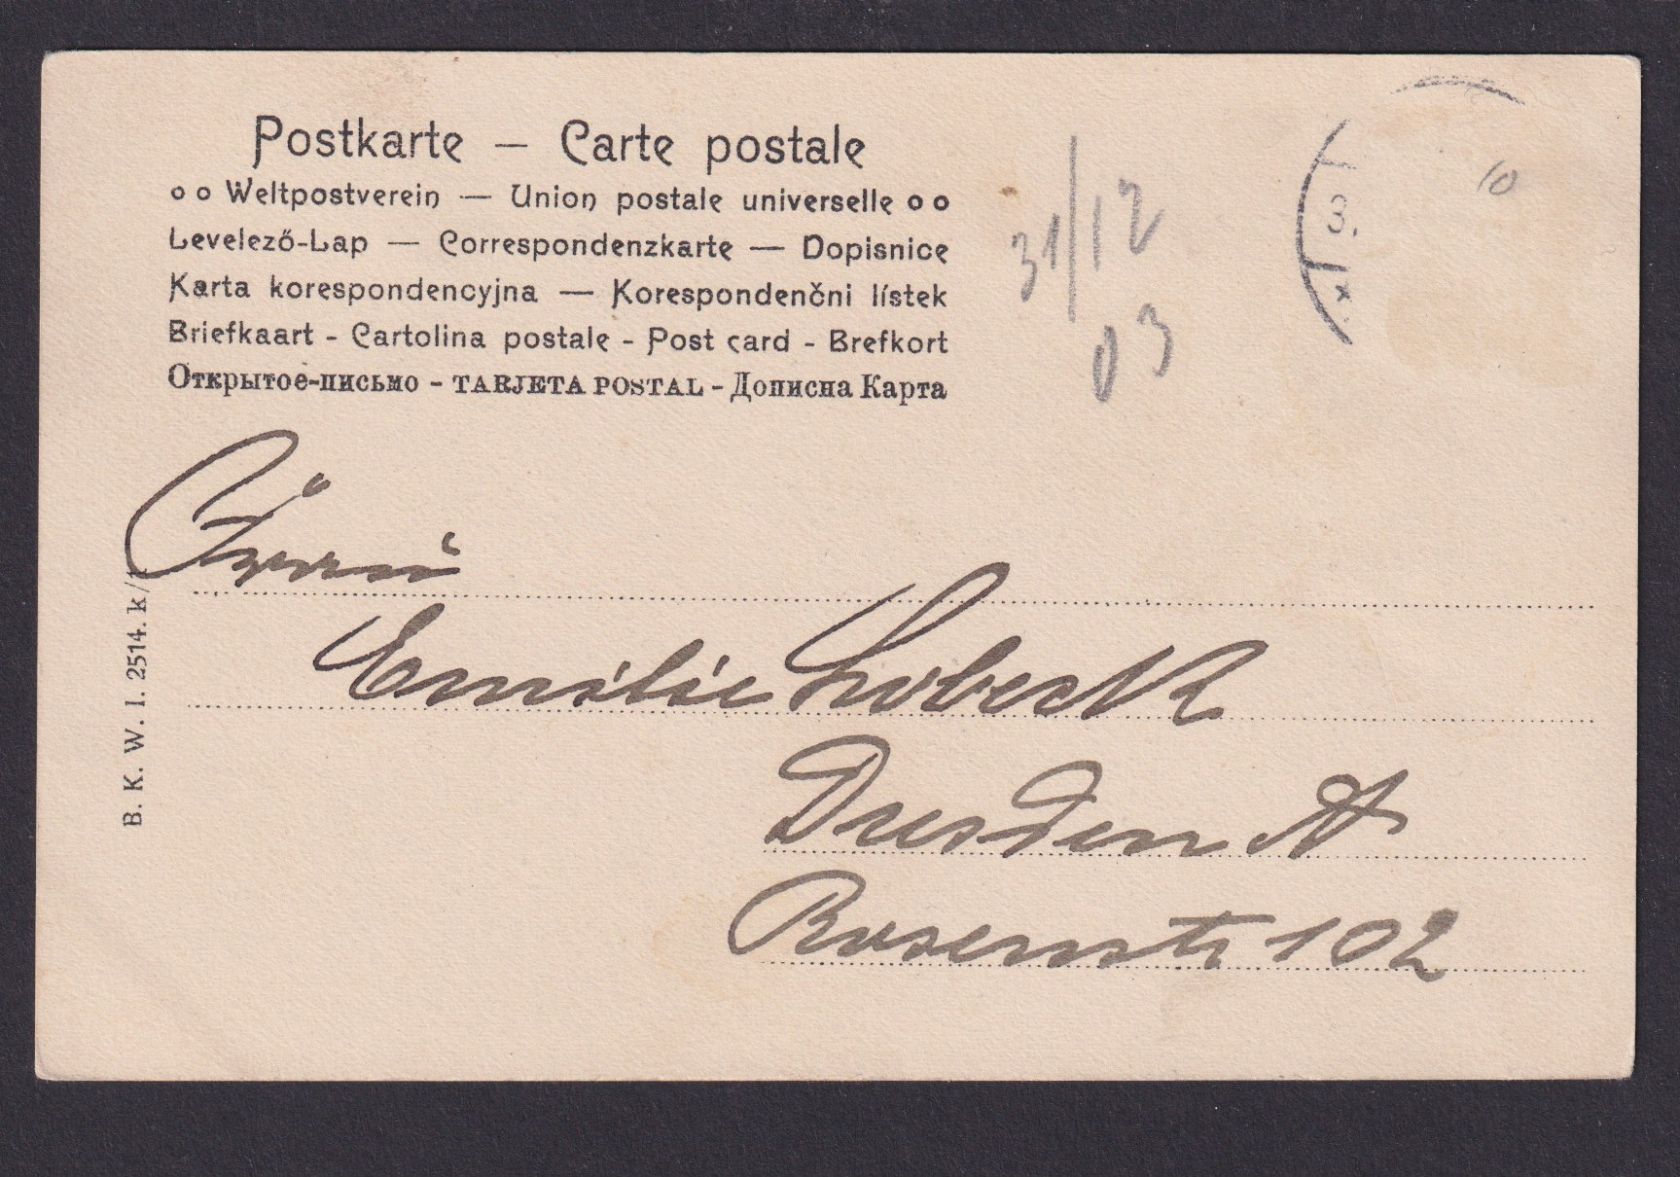 Postkarte — Carte postale
o o Weltpostverein — Union postale universelle o o
Levelező-Lap — Correspondenzkarte — Dopisnice
Karta korespondencyjna — Korespondenčni lístek
Briefkaart - Cartolina postale - Post card - Brefkort
Открытое-письмо - TARJETA POSTAL - Дописна Карта
31/12
03
10
3.
Frau
Emilie Lobeck
Dresden A
Rosenstr 102
B. K. W. I. 2514. k/